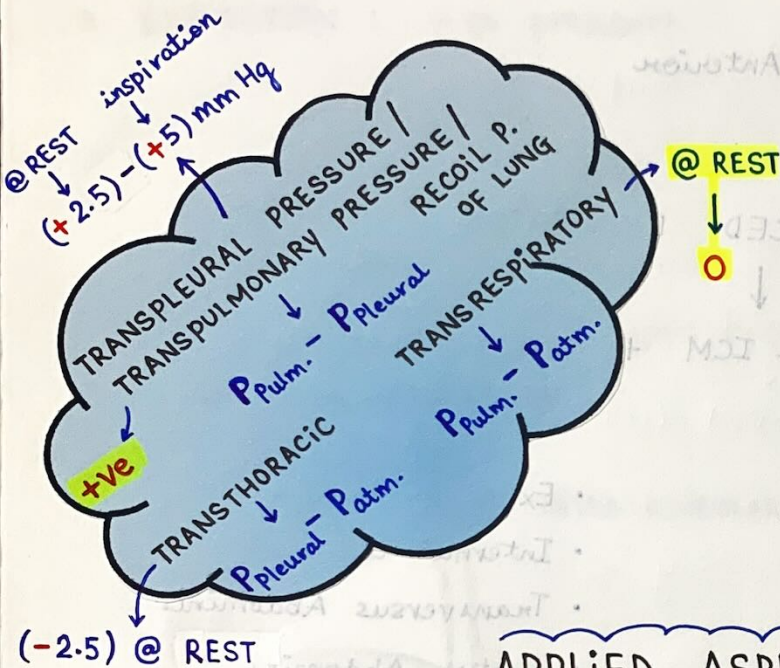 inspiration
@ REST
(+2.5) - (+5) mm Hg
TRANSPLEURAL PRESSURE /
TRANSPULMONARY PRESSURE /
RECOIL P.
OF LUNG
PPulm. - PPleural
+ve
TRANSRESPIRATORY
PPulm. - Patm.
@ REST
0
TRANSTHORACIC
PPleural - Patm.
(-2.5) @ REST
APPLIED